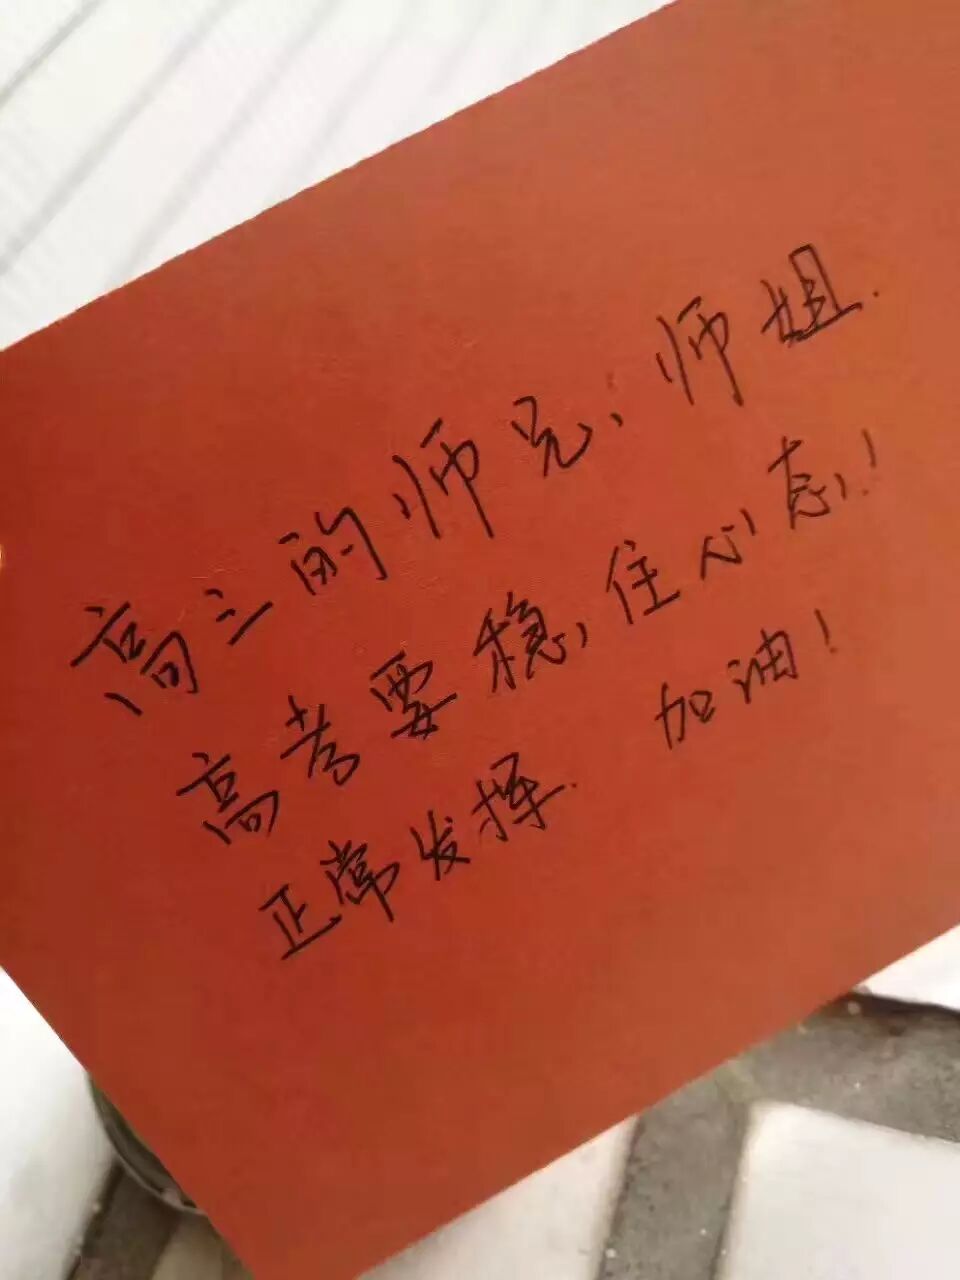 高三的师兄、师姐.
高考要稳住心态!
正常发挥. 加油!